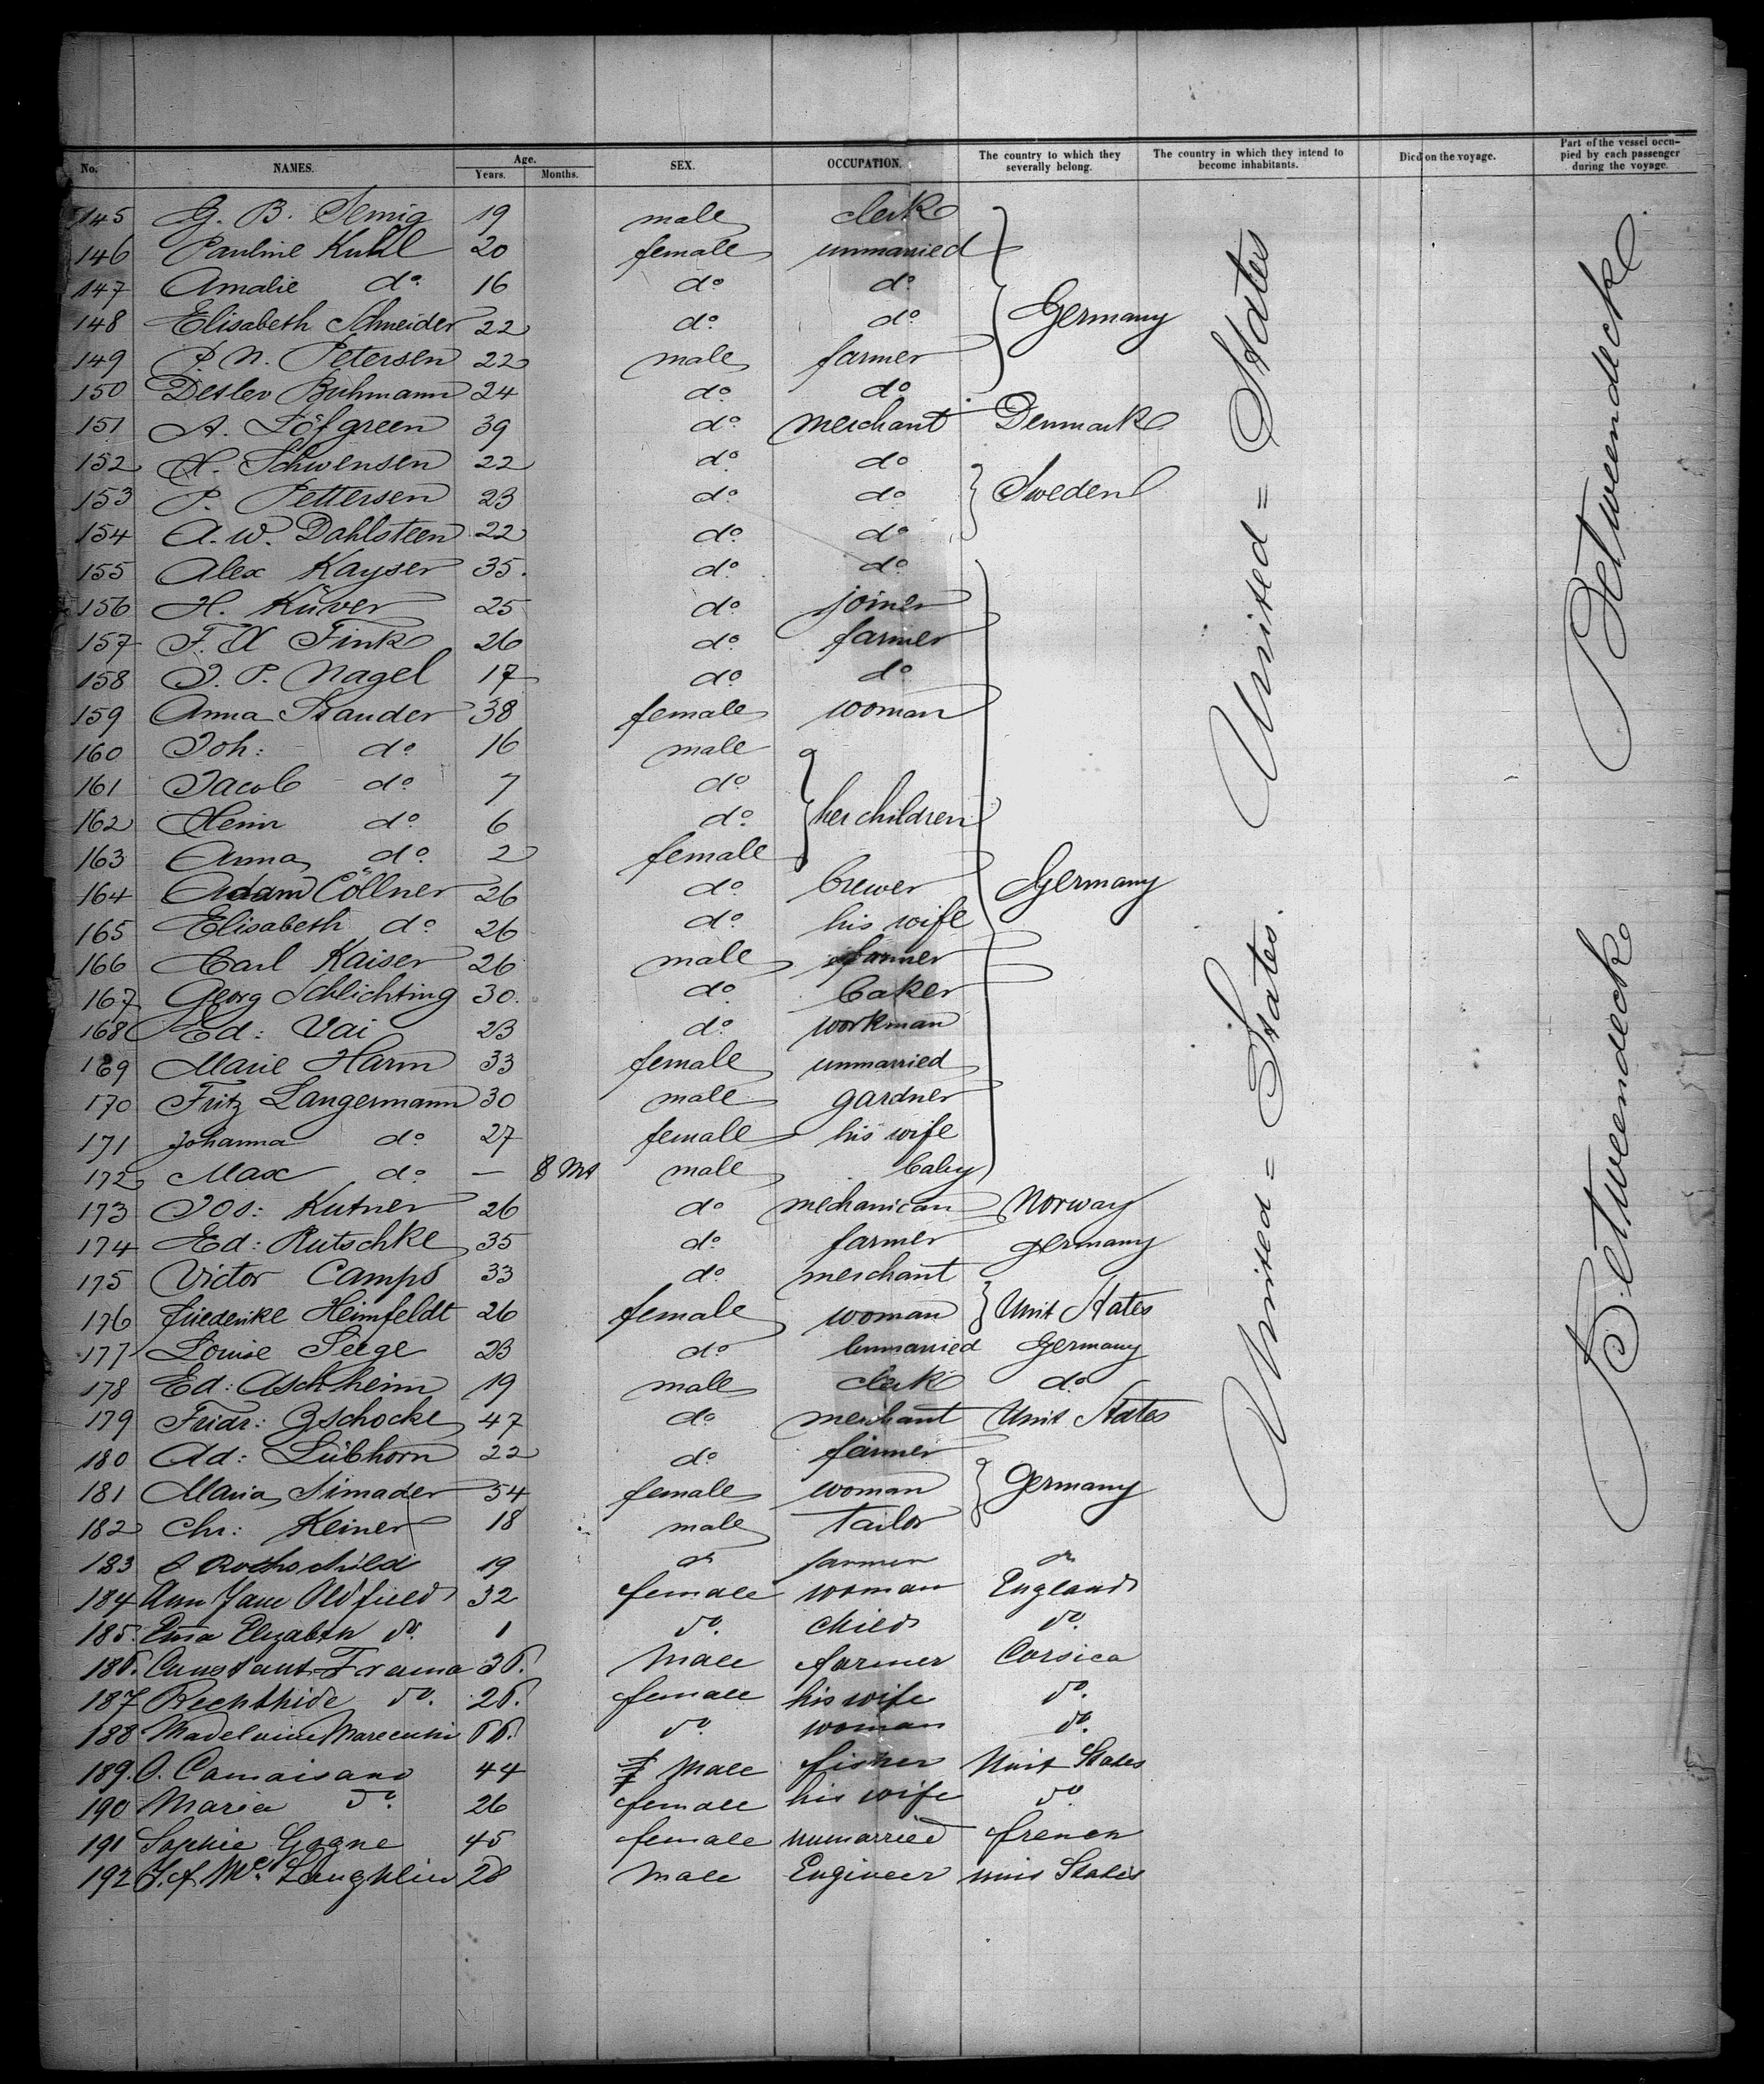 No. NAMES. Age. Years. Months. SEX. OCCUPATION. The country to which they severally belong. The country in which they intend to become inhabitants. Died on the voyage. Part of the vessel occupied by each passenger during the voyage.
145 G. B. 19 male clerk
146 Pauline Kuhl 20 female unmarried
147 Amalie do. 16 do. do.
148 Elisabeth Schneider 22 do. do. Germany
149 P. N. Petersen 22 male farmer
150 Detlev Buhmann 24 do. do.
151 A. Löfgreen 39 do. merchant Denmark
152 H. Schwensen 22 do. do
153 P. Pettersen 23 do. do Sweden
154 A. W. Dahlsteen 22 do. do
155 Alex Kayser 35. do. do.
156 H. Küver 25 do. joiner
157 F. A Fink 26 do. farmer
158 J. P. Nagel 17 do. do
159 Anna Stauder 38 female woman
160 Joh: do. 16 male
161 Jacob do. 7 do.
162 Heinr do. 6 do. her children
163 Anna do. 2 female
164 Adam Cöllner 26 do. brewer Germany
165 Elisabeth do. 26 do. his wife
166 Carl Kaiser 26 male farmer
167 Georg Schlichting 30. do. baker
168 Ed: Vai 23 do. workman
169 Marie Harm 33 female unmarried
170 Fritz Langermann 30 male gardner
171 Johanna do. 27 female his wife
172 Max do. — 8 Ms male baby
173 Jos: Kutner 26 do mechanican Norway
174 Ed: Rutschke 35 do. farmer germany
175 Victor Camps 33 do. merchant
176 friederike Heimfeldt 26 female woman Unit States
177 Louise Seege 23 do. Unmarried Germany
178 Ed: Aschheim 19 male clerk do.
179 Fridr: Zschocke 47 do. merchant Unit States
180 Ad: Lübhorn 22 do. farmer
181 Maria Simader 54 female woman Germany
182 Chr: Keiner 18 male Tailor
183 Rothschild 19 do farmer do
184 Ann Jane Oldfield 32 female woman England
185. Elizabeth do. 1 do. child do.
186. Constant Frama 36. Male farmer Corsica
187 do. 26. female his wife do.
188 66. do. woman do.
189. O. Camaisano 44 Male fisher Unit States
190 Maria do. 26 female his wife do
191 Sophie Gogne 45 female unmarried french
192 Mc. Laughlin 28 Male Engineer unit States
United = States
United = States.
Betweendeck
Betweendeck